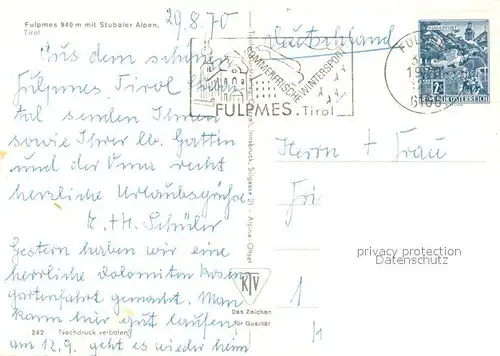 Fulpmes 940 m mit Stubaier Alpen,
Tirol
29.8.70
Aus dem schönen
Fulpmes, Tirol
tal senden Ihnen
sowie Ihrer lb. Gattin
und der Oma recht
herzliche Urlaubsgrüße
K. + H. Schüler
Gestern haben wir eine
herrliche Dolomiten Rosen
gartenfahrt gemacht. Man
kann hier gut laufen,
am 12.9. geht es wieder heim
242 Nachdruck verboten
SOMMERFRISCHE WINTERSPORT
FULPMES. Tirol
Deutschland
2S
REPUBLIK ÖSTERREICH
Innsbruck, Sillgasse 21 - Alpina-Offset
KTV
Das Zeichen
für Qualität
Herrn + Frau
privacy protection
oldthing.com